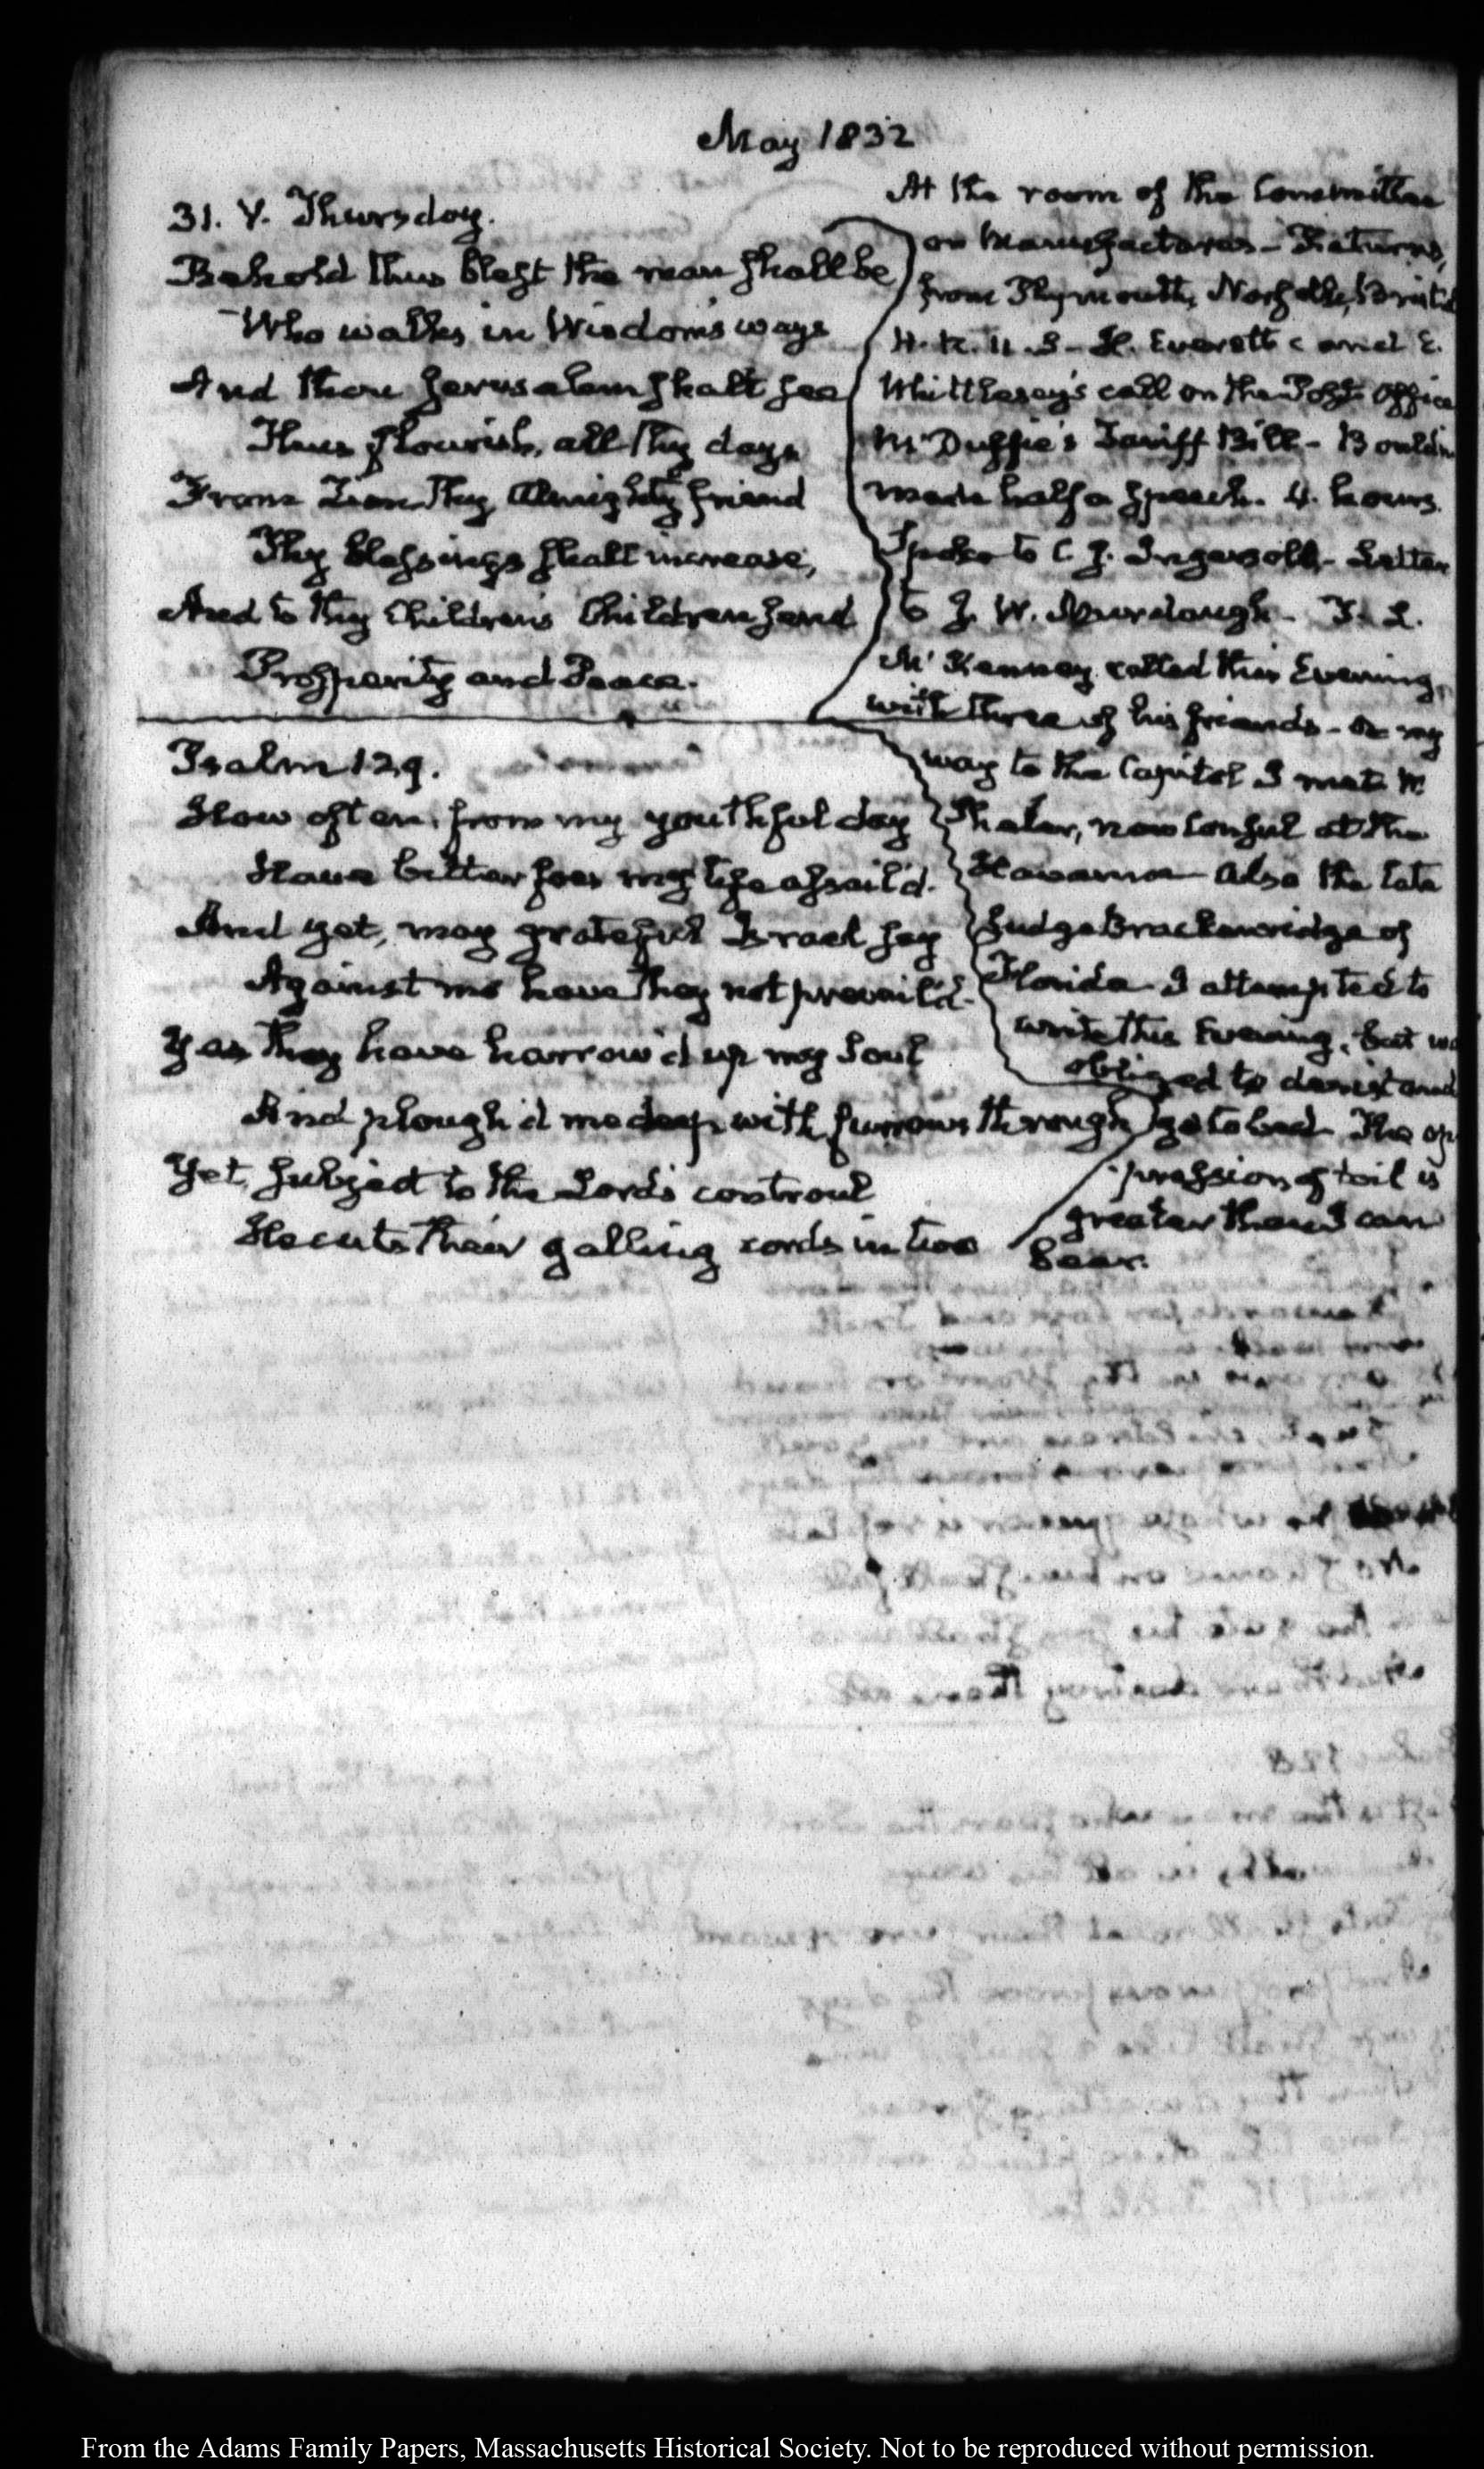 May 1832
31. V. Thursday.
Behold thus blest the man shall be
Who walks in Wisdom's ways
And thou Jerusalem shalt see
Thus flourish, all thy days
From Zion thy Almighty friend
Thy blessings shall increase,
And to thy Children's Children send
Prosperity and Peace.
Psalm 129.
How often, from my youthful day
Have bitter foes my life assail'd.
And yet, may grateful Israel say
Against me have they not prevail'd.
Yea they have harrow'd up my Soul
And plough'd me deep with furrows through
Yet, subject to the Lord's controul
He cuts their galling cords in two
At the room of the Committee
on Manufactures – Returns,
from Plymouth, Norfolk, Bristol
H. R. U. S – H. Everett's and E.
Whittlesey's call on the Post Office
McDuffie's Tariff Bill – Bouldin
made half a speech. 4. hours.
Spoke to C. J. Ingersoll – Letter
to J. W. Murdaugh – T. L.
McKenney called this Evening,
with three of his friends – on my
way to the Capitol I met Mr
Shaler, now Consul at the
Havanna also the late
Judge Brackenridge of
Florida I attempted to
write this Evening, but was
obliged to desist and
go to bed. The op
pression of toil is
greater than I can
bear.
From the Adams Family Papers, Massachusetts Historical Society. Not to be reproduced without permission.